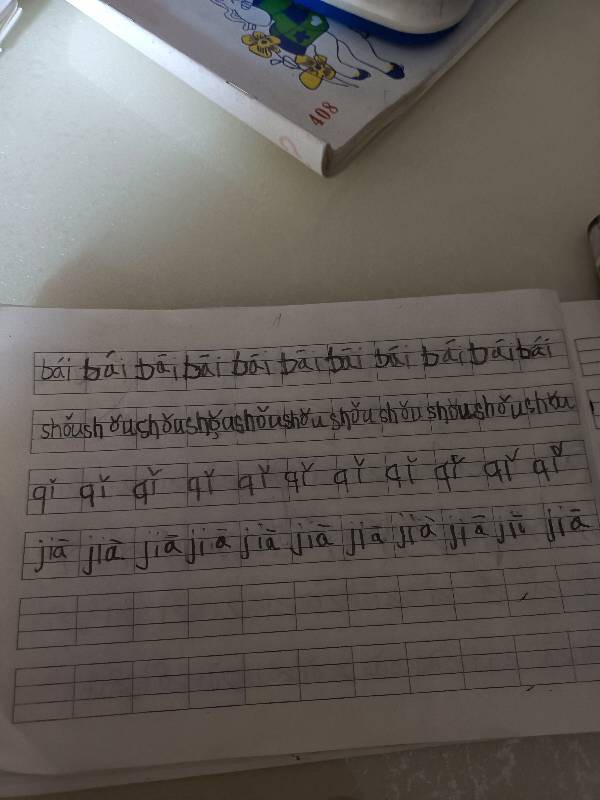 408
bái bái bāi bāi bāi bāi bāi bāi bāi bāi bái
shǒu shǒu shǒu shǒu shǒu shǒu shǒu shǒu shǒu shǒu shǒu
qǐ qǐ qǐ qǐ qǐ qǐ qǐ qǐ qǐ qǐ qǐ
jiā jiā jiā jiā jiā jiā jiā jiā jiā jiā jiā